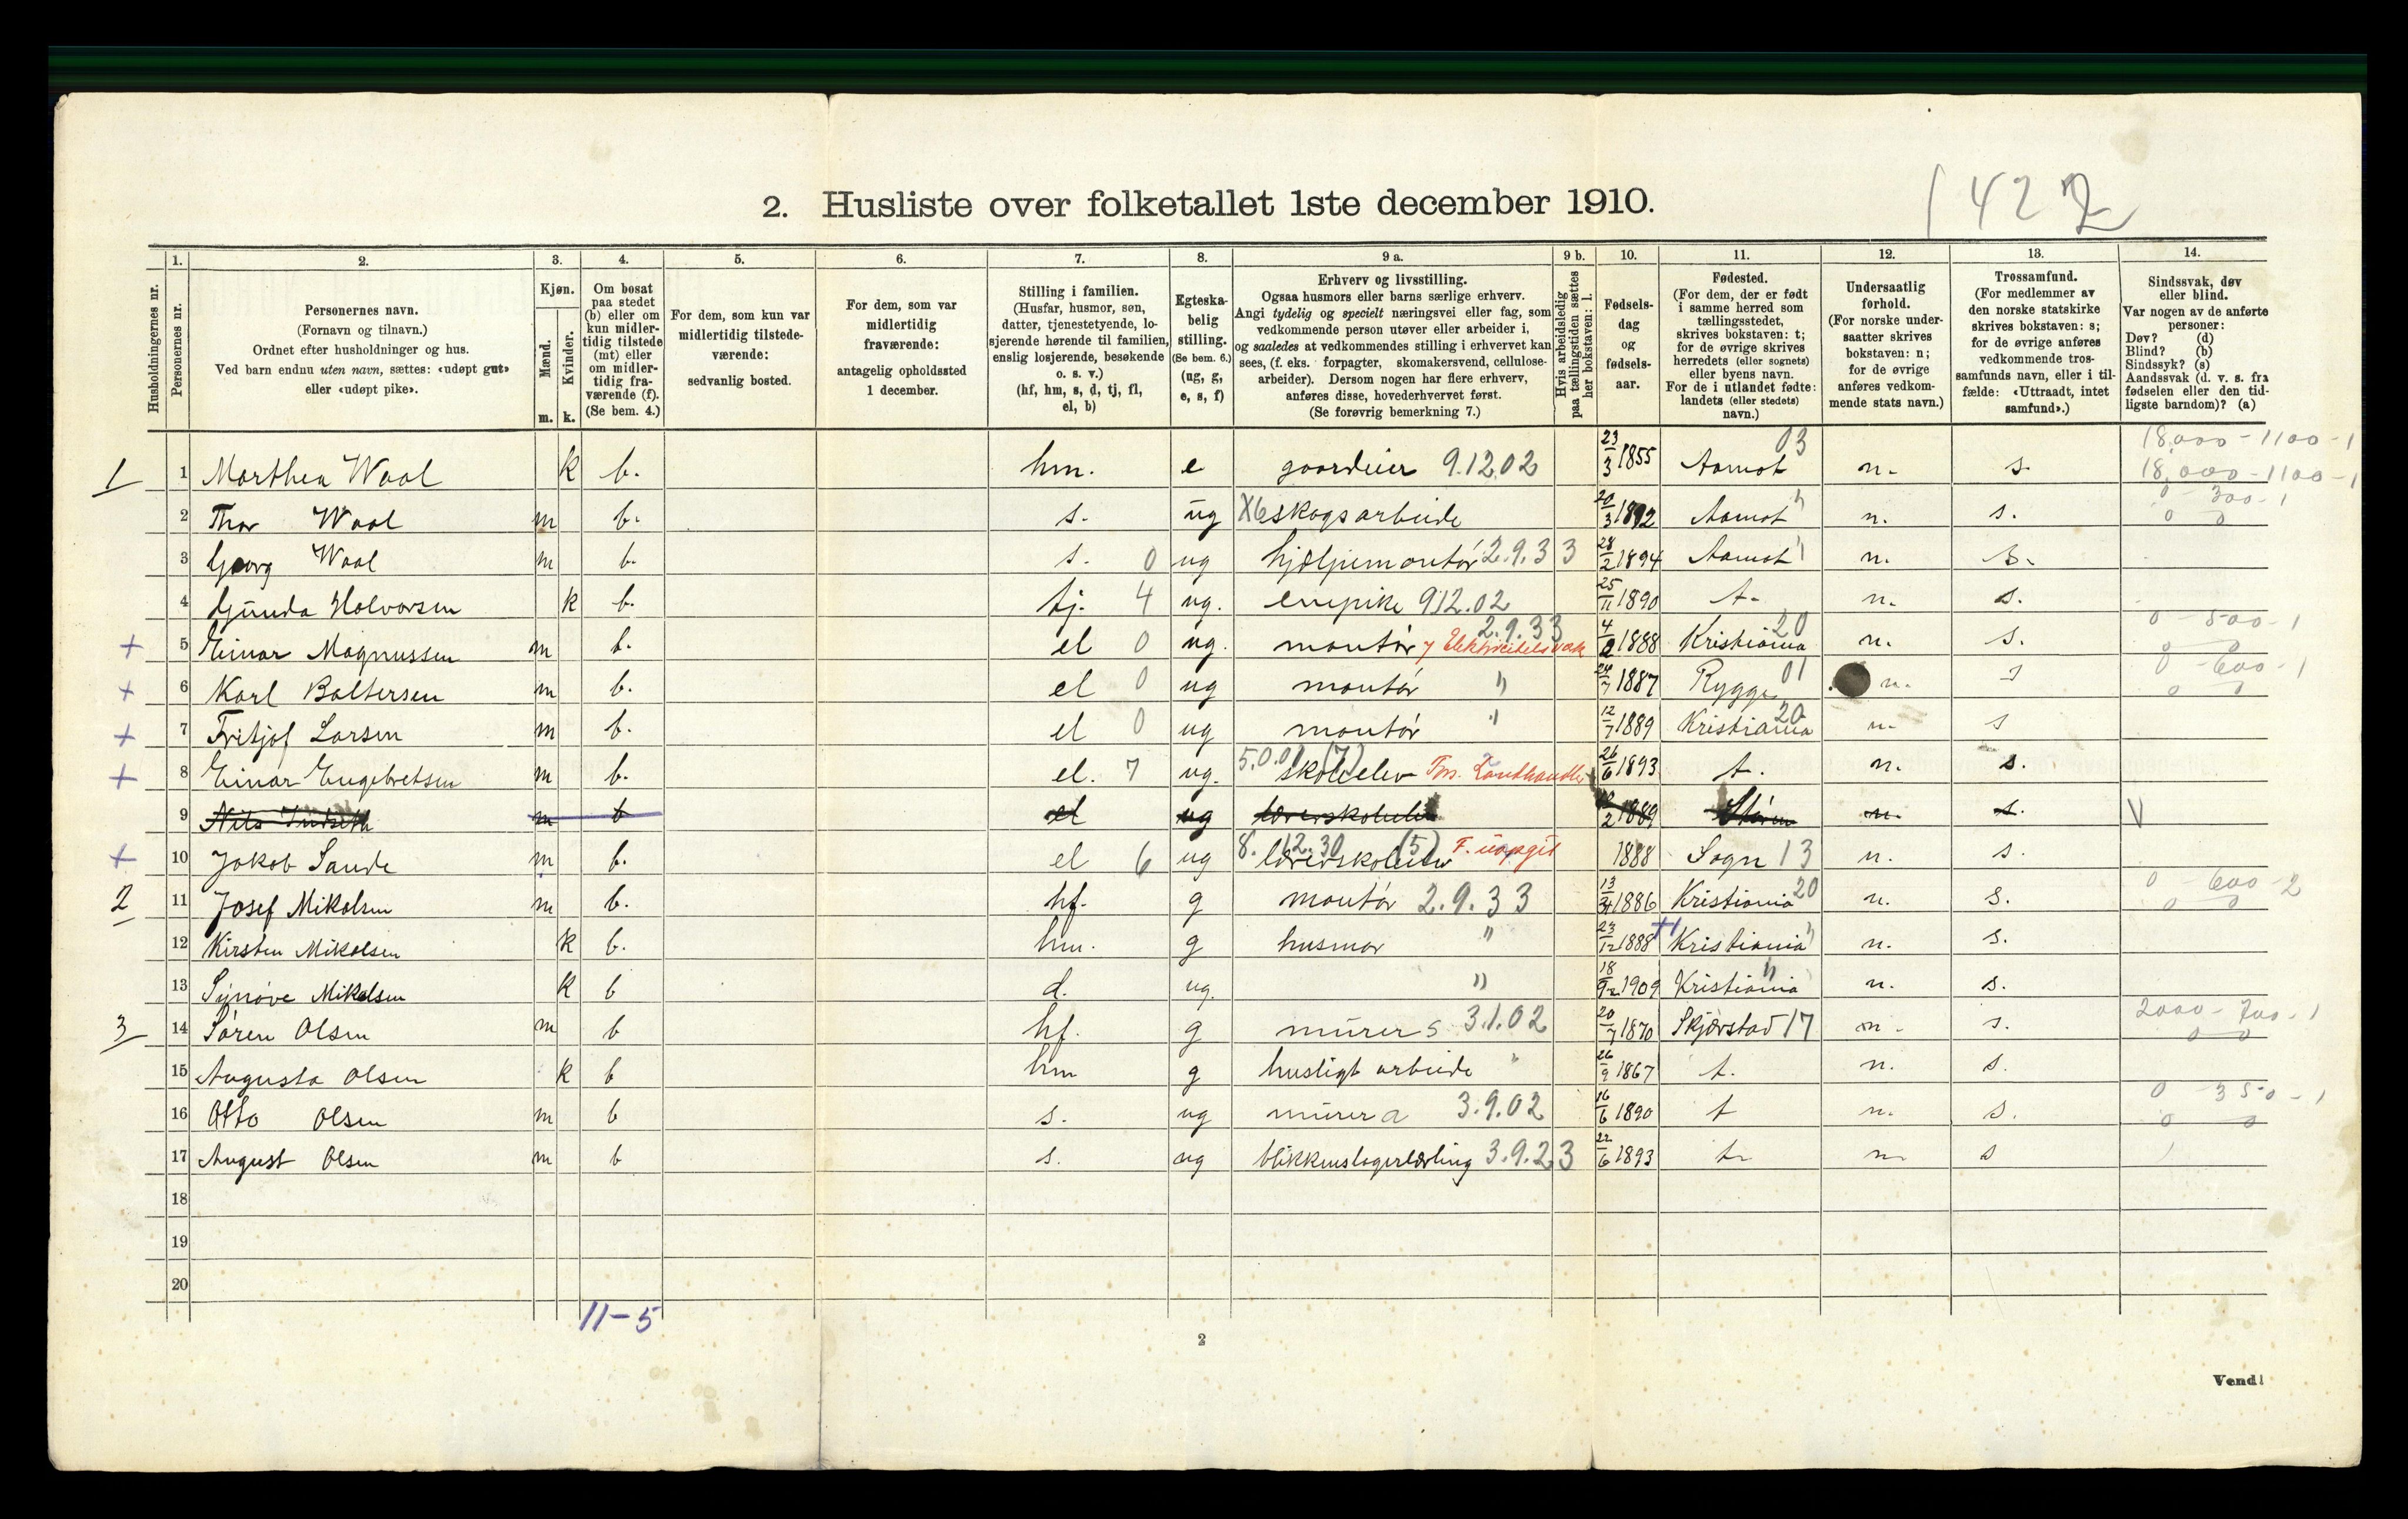 1422
2. Husliste over folketallet 1ste december 1910.
1. 2. 3. 4. 5. 6. 7. 8. 9 a. 9 b. 10. 11. 12. 13. 14.
Husholdningernes nr.
Personernes nr.
Personernes navn.
(Fornavn og tilnavn.)
Ordnet efter husholdninger og hus.
Ved barn endnu uten navn, sættes: «udøpt gut»
eller «udøpt pike».
Kjøn.
Mænd.
Kvinder.
m. k.
Om bosat
paa stedet
(b) eller om
kun midler-
tidig tilstede
(mt) eller
om midler-
tidig fra-
værende (f).
(Se bem. 4.)
For dem, som kun var
midlertidig tilstede-
værende:
sedvanlig bosted.
For dem, som var
midlertidig
fraværende:
antagelig opholdssted
1 december.
Stilling i familien.
(Husfar, husmor, søn,
datter, tjenestetyende, lo-
sjerende hørende til familien,
enslig losjerende, besøkende
o. s. v.)
(hf, hm, s, d, tj, fl,
el, b)
Egteska-
belig
stilling.
(Se bem. 6.)
(ug, g,
e, s, f)
Erhverv og livsstilling.
Ogsaa husmors eller barns særlige erhverv.
Angi tydelig og specielt næringsvei eller fag, som
vedkommende person utøver eller arbeider i,
og saaledes at vedkommendes stilling i erhvervet kan
sees, (f. eks. forpagter, skomakersvend, cellulose-
arbeider). Dersom nogen har flere erhverv,
anføres disse, hovederhvervet først.
(Se forøvrig bemerkning 7.)
Hvis arbeidsledig
paa tællingstiden sættes
her bokstaven: l.
Fødsels-
dag
og
fødsels-
aar.
Fødested.
(For dem, der er født
i samme herred som
tællingsstedet,
skrives bokstaven: t;
for de øvrige skrives
herredets (eller sognets)
eller byens navn.
For de i utlandet fødte:
landets (eller stedets)
navn.)
Undersaatlig
forhold.
(For norske under-
saatter skrives
bokstaven: n;
for de øvrige
anføres vedkom-
mende stats navn.)
Trossamfund.
(For medlemmer av
den norske statskirke
skrives bokstaven: s;
for de øvrige anføres
vedkommende tros-
samfunds navn, eller i til-
fælde: «Uttraadt, intet
samfund».)
Sindssvak, døv
eller blind.
Var nogen av de anførte
personer:
Døv? (d)
Blind? (b)
Sindssyk? (s)
Aandssvak (d. v. s. fra
fødselen eller den tid-
ligste barndom)? (a)
1 1 Marthea Waal k b. hm. e gaardeier 9.12.02 23/3 1855 Aamot 03 n. s. 18.000-1100-1 18.000-1100-1
2 Thor Waal m b. s. ug X6 skogsarbeide 20/3 1892 Aamot " n. s. 0 300-1 0 0
3 Georg Waal m b. s. 0 ug hjælpemontør 2.9.33 28/2 1894 Aamot " n. s.
4 Gunda Halvorsen k b. tj. 4 ug. enepike 912.02 25/11 1890 t. n. s.
+ 5 Einar Magnussen m b. el 0 ug. montør 2.9.33 y Elektricitetsvæk 4/2 1888 Kristiania 20 n. s. 0-500-1 0 0
+ 6 Karl Baltersen m b. el 0 ug montør " 24/7 1887 Rygge 01 n. s 0-600-1 0 0
+ 7 Fritjof Larsen m b. el 0 ug montør " 12/7 1889 Kristiania 20 n. s
+ 8 Einar Engebretsen m b. el. 7 ug. 5.0.01 (7) skoleelev Fm. Landhandler 26/6 1893 t. n. s.
9 Nils m b el ug lærerskoleelev 2 1889 Støren n. s. V
+ 10 Jakob Sande m b. el 6 ug 8. 12.30 (5) lærerskoleelev F. uopgit 1888 Sogn 13 n. s.
2 11 Josef Mikalsen m b. hf. g montør 2.9.33 13/3 1886 Kristiania 20 n. s. 0-600-2 0 0
12 Kirsten Mikalsen k b. hm. g husmor " 23/12 1888 Kristiania " n. s.
13 Synøve Mikalsen k b d. ug. " 18/9 1909 Kristiania " n. s.
3 14 Søren Olsen m b hf. g murer s 3.1.02 20/7 1870 Skjørstad 17 n. s. 2000-700-1 0 0
15 Augusta Olsen k b hm g husligt arbeide " 26/9 1867 t. n. s.
16 Otto Olsen m b s. ug murer a 3.9.02 16/6 1890 t n. s. 0 350-1 0 0
17 August Olsen m b s. ug blikkenslagerlærling 3.9.23 22/6 1893 t. n. s
18
19
20
11-5
2
Vend!